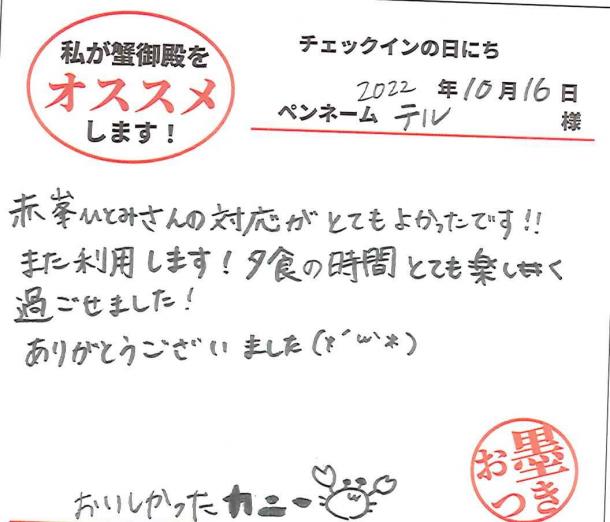 私が蟹御殿を
オススメ
します！
チェックインの日にち
2022 年10月16日
ペンネーム テル 様
赤峯ひとみさんの対応がとてもよかったです!!
また利用します！夕食の時間とても楽しく
過ごせました！
ありがとうございました(*´ω`*)
おいしかったカニー
お墨つき